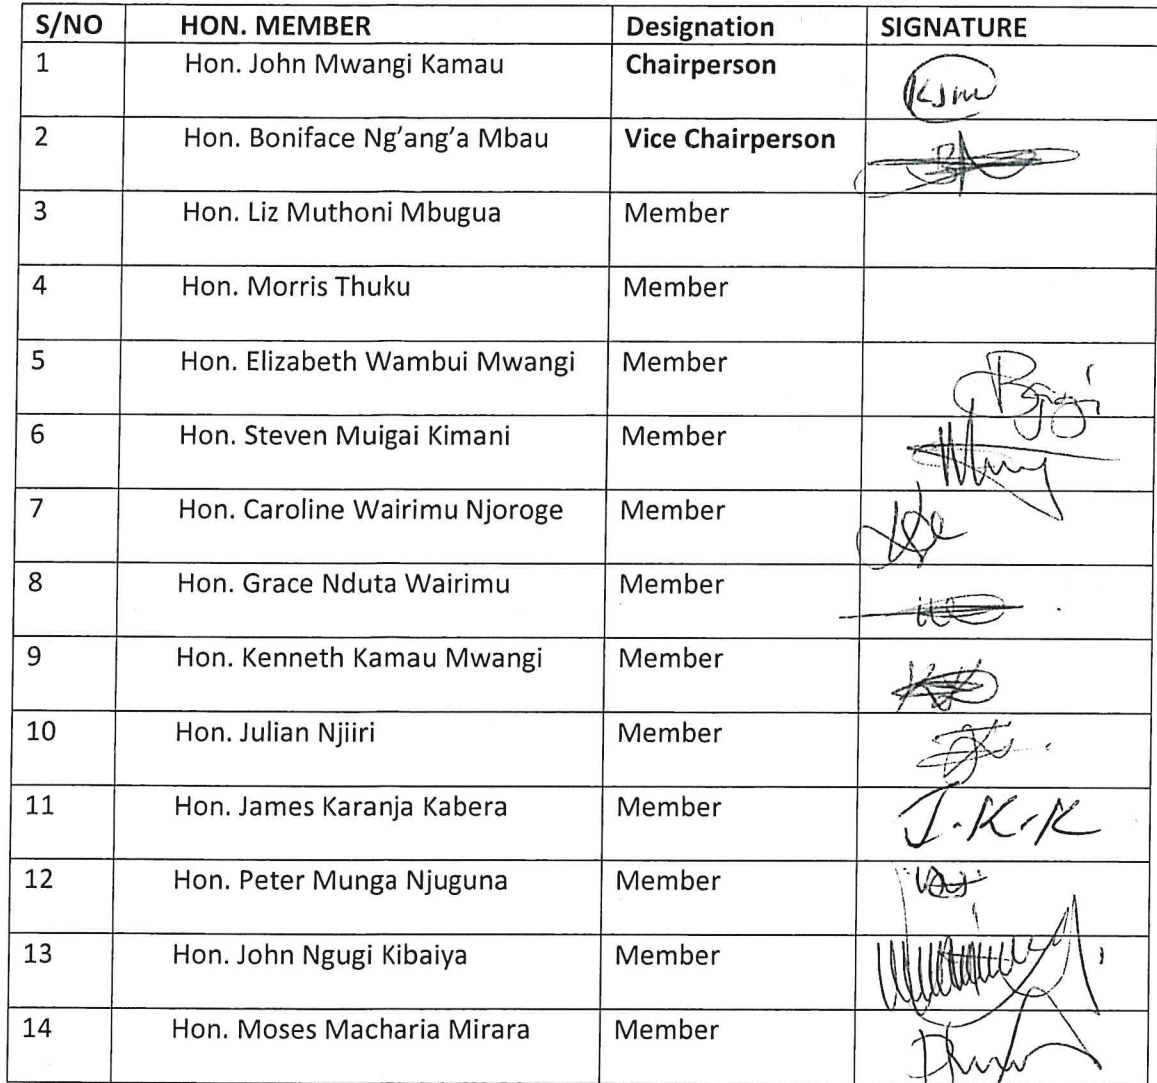 S/NO HON. MEMBER Designation SIGNATURE
1 Hon. John Mwangi Kamau Chairperson
2 Hon. Boniface Ng'ang'a Mbau Vice Chairperson
3 Hon. Liz Muthoni Mbugua Member
4 Hon. Morris Thuku Member
5 Hon. Elizabeth Wambui Mwangi Member
6 Hon. Steven Muigai Kimani Member
7 Hon. Caroline Wairimu Njoroge Member
8 Hon. Grace Nduta Wairimu Member
9 Hon. Kenneth Kamau Mwangi Member
10 Hon. Julian Njiiri Member
11 Hon. James Karanja Kabera Member J.K.K
12 Hon. Peter Munga Njuguna Member
13 Hon. John Ngugi Kibaiya Member
14 Hon. Moses Macharia Mirara Member